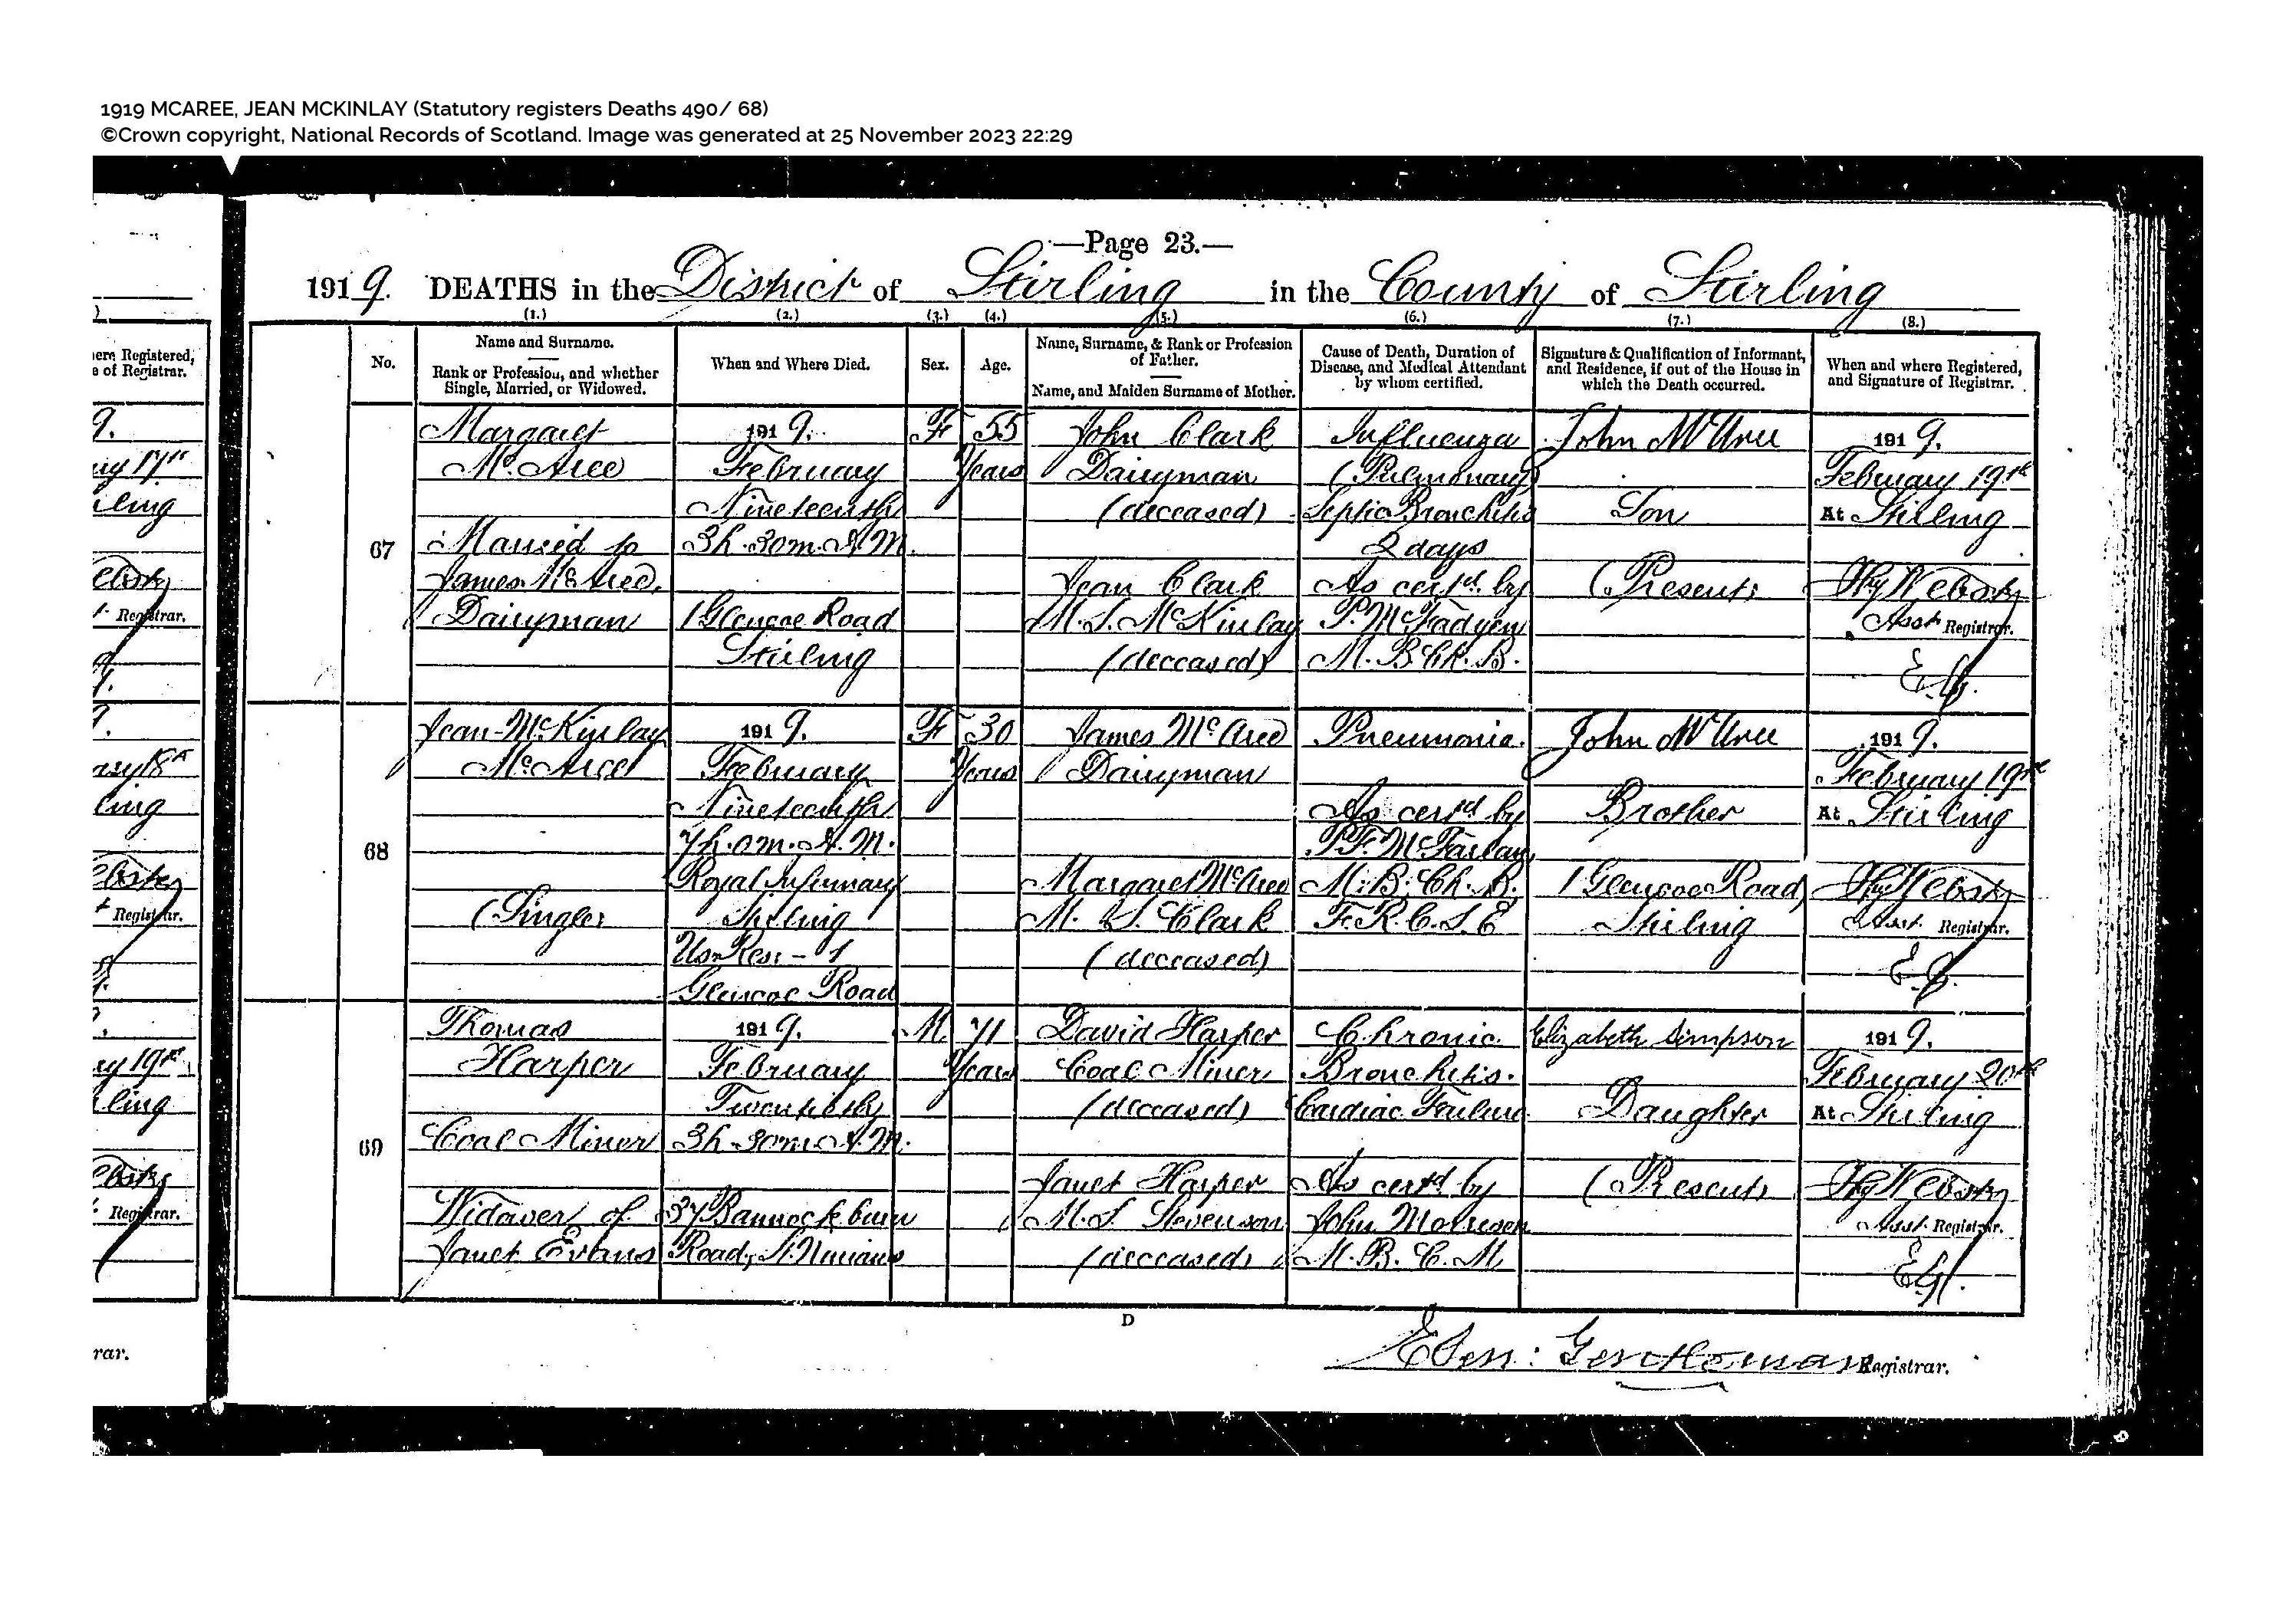 1919 MCAREE, JEAN MCKINLAY (Statutory registers Deaths 490/ 68)
©Crown copyright, National Records of Scotland. Image was generated at 25 November 2023 22:29
—Page 23.—
1919. DEATHS in the District of Stirling in the County of Stirling
(1.) (2.) (3.) (4.) (5.) (6.) (7.) (8.)
No.
Name and Surname.
Rank or Profession, and whether
Single, Married, or Widowed.
When and Where Died.
Sex.
Age.
Name, Surname, & Rank or Profession
of Father.
Name, and Maiden Surname of Mother.
Cause of Death, Duration of
Disease, and Medical Attendant
by whom certified.
Signature & Qualification of Informant,
and Residence, if out of the House in
which the Death occurred.
When and where Registered,
and Signature of Registrar.
67
Margaret
McAree
Married to
James McAree,
Dairyman
1919.
February
Nineteenth
3h. 30m. A.M.
1 Glencoe Road
Stirling
F
55
Years
John Clark
Dairyman
(deceased)
Jean Clark
M.S. McKinlay
(deceased)
Influenza
(Pulmonary)
Septic Bronchitis
2 days
As certd. by
P. McFadyen
M.B. Ch. B.
John McAree
Son
(Present)
1919.
February 19th
At Stirling
Hy Webster
Asst Registrar.
E.G.
68
Jean McKinlay
McAree
(Single)
1919.
February
Nineteenth
7h. 0m. A.M.
Royal Infirmary
Stirling
Us. Res. - 1
Glencoe Road
F
30
Years
James McAree
Dairyman
Margaret McAree
M. S. Clark
(deceased)
Pneumonia.
As certd by
P.F. McFarlan
M.B. Ch. B.
F.R.C.S.E
John McAree
Brother
1 Glencoe Road
Stirling
1919.
February 19th
At Stirling
Hy Webster
Asst. Registrar.
E.G.
69
Thomas
Harper
Coal Miner
Widower of
Janet Evans
1919.
February
Twentieth
3h. 30m. A.M.
37 Bannockburn
Road, St. Ninians
M.
71
Years
David Harper
Coal Miner
(deceased)
Janet Harper
M.S. Stevenson
(deceased)
Chronic
Bronchitis.
Cardiac Failure
As certd by
John Morrison
M.B.C.M.
Elizabeth Simpson
Daughter
(Present)
1919.
February 20th
At Stirling
Hy Webster
Asst. Registrar.
E.G.
D
Eben: Gentleman Registrar.